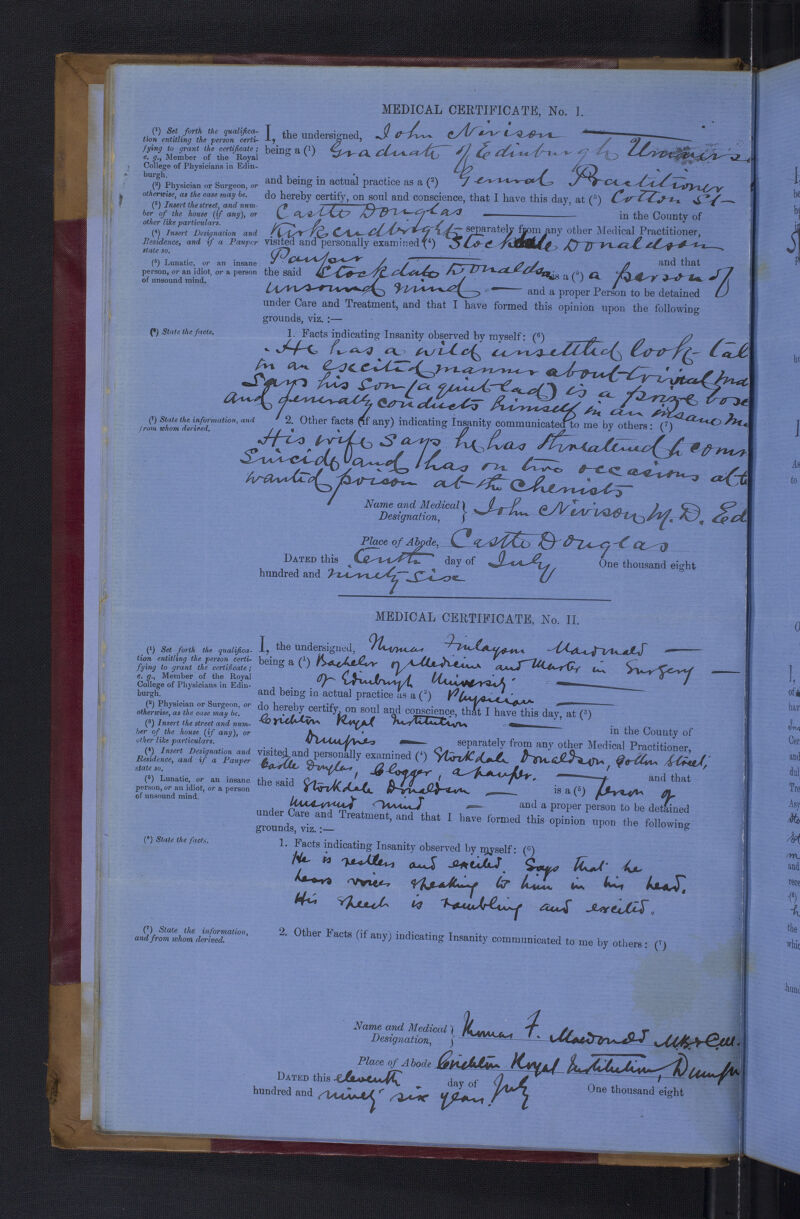 MEDICAL CERTIFICATE, No. I.
(¹) Set forth the qualifica-
tion entitling the person certi-
fying to grant the certificate;
e. g., Member of the Royal
College of Physicians in Edin-
burgh.
(²) Physician or Surgeon, or
otherwise, as the case may be.
(³) Insert the street, and num-
ber of the house (if any), or
other like particulars.
(⁴) Insert Designation and
Residence, and if a Pauper
state so.
(⁵) Lunatic, or an insane
person, or an idiot, or a person
of unsound mind.
I, the undersigned, John Nivison
being a (¹) Graduate of Edinburgh Univers
and being in actual practice as a (²) General Practitioner
do hereby certify, on soul and conscience, that I have this day, at (³) Cotton St
Castle Douglas in the County of
Kirkcudbright separately from any other Medical Practitioner,
visited and personally examined (⁴) Stockdale Donaldson
Pauper and that
the said Stockdale Donaldson is a (⁵) a person of
unsound mind — and a proper Person to be detained
under Care and Treatment, and that I have formed this opinion upon the following
grounds, viz. :—
(⁶) State the facts.
1. Facts indicating Insanity observed by myself: (⁶)
He has a wild unsettled look - tal
in an excited manner about trivial ma
Says his son (a quiet lad) is a prize boxe
and generally conducts himself in an insane ma
(⁷) State the information, and
from whom derived.
2. Other facts (if any) indicating Insanity communicated to me by others: (⁷)
His wife says he has threatened to comm
Suicide and has on two occasions
wanted poison at the Chemists
Name and Medical
Designation, } John Nivison M.D. Ed
Place of Abode, Castle Douglas
DATED this Tenth day of July One thousand eight
hundred and ninety six
MEDICAL CERTIFICATE, No. II.
(¹) Set forth the qualifica-
tion entitling the person certi-
fying to grant the certificate;
e. g., Member of the Royal
College of Physicians in Edin-
burgh.
(²) Physician or Surgeon, or
otherwise, as the case may be.
(³) Insert the street and num-
ber of the house (if any), or
other like particulars.
(⁴) Insert Designation and
Residence, and if a Pauper
state so.
(⁵) Lunatic, or an insane
person, or an idiot, or a person
of unsound mind.
I, the undersigned, Thomas Finlayson Macdonald —
being a (¹) Bachelor of Medicine and Master in Surgery —
of Edinburgh University
and being in actual practice as a (²) Physician
do hereby certify, on soul and conscience, that I have this day, at (³)
Crichton Royal Institution in the County of
Dumfries — separately from any other Medical Practitioner,
visited and personally examined (⁴) Stockdale Donaldson, Cotton Street,
Castle Douglas, Clogger, a pauper. and that
the said Stockdale Donaldson — is a (⁵) person of
unsound mind — and a proper person to be detained
under Care and Treatment, and that I have formed this opinion upon the following
grounds, viz. :—
(⁶) State the facts.
1. Facts indicating Insanity observed by myself: (⁶)
He is restless and excited. Says that he
hears voices speaking to him in his head.
His speech is rambling and excited.
(⁷) State the information,
and from whom derived.
2. Other Facts (if any) indicating Insanity communicated to me by others: (⁷)
Name and Medical
Designation, } Thomas F. Macdonald M.B. & C.M.
Place of Abode Crichton Royal Institution, Dumfr
DATED this eleventh day of July One thousand eight
hundred and ninety six years.